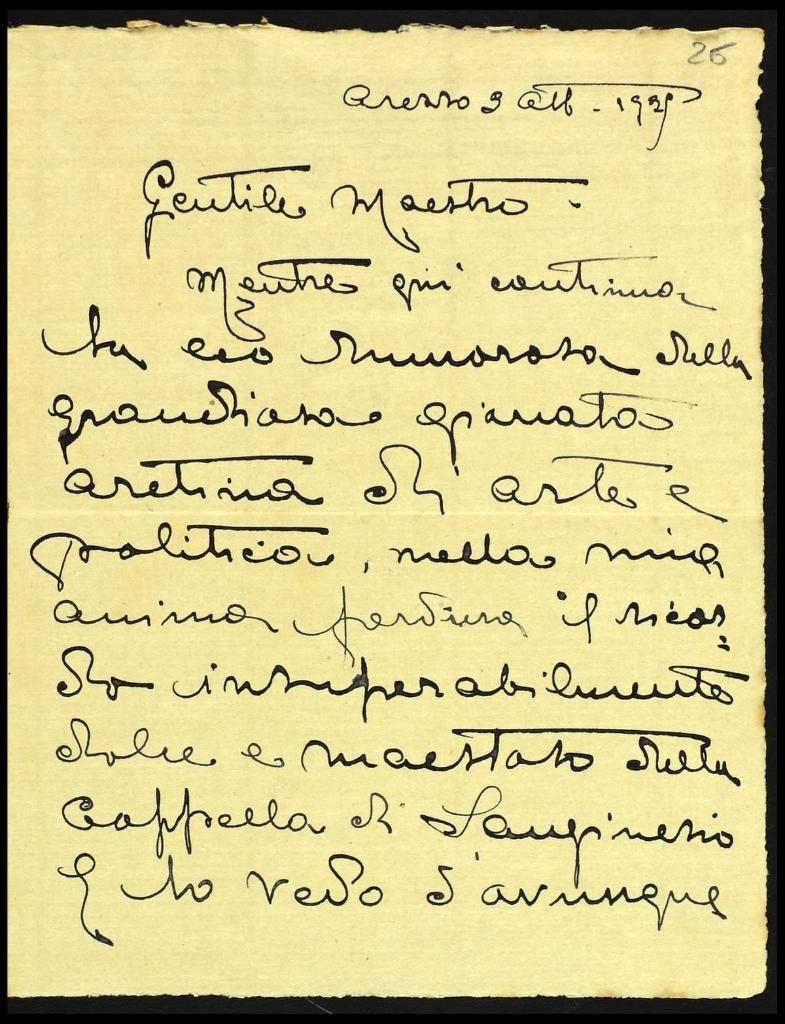 26
Arezzo 3 Ott - 192
Gentile Maestro -
Mentre qui continua
la eco rumorosa della
grandiosa giornata
aretina di arte e
politica, nella mia
anima perdura il ricor=
do insuperabilmente
dolce e maestoso della
Cappella di Sanginesio
E lo vedo d'avunque